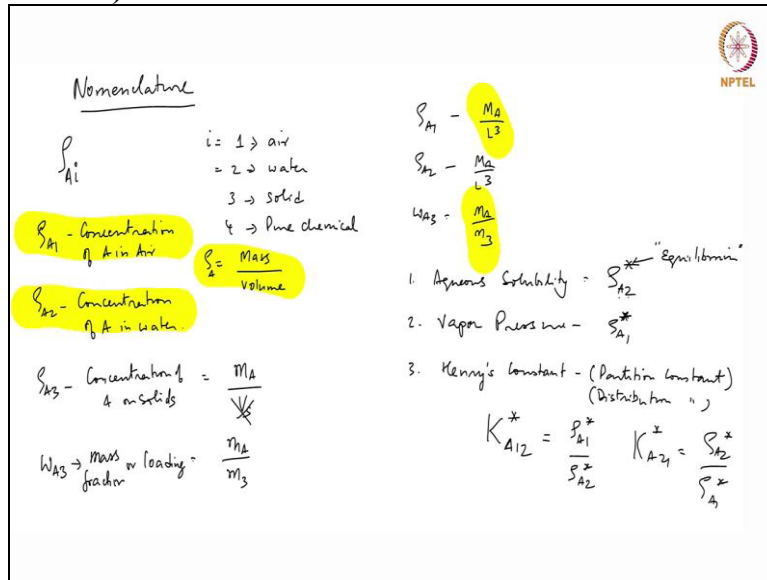 Nomenclature
NPTEL
ρAi
i = 1 → air
= 2 → water
3 → solid
4 → Pure chemical
ρA1 - Concentration
of A in Air
ρA = Mass / Volume
ρA2 - Concentration
of A in water.
ρA3 - Concentration of
A on solids = mA / V3
WA3 → mass or loading = mA / m3
fraction
ρA1 - MA / L3
ρA2 - MA / L3
WA3 = MA / M3
1. Aqueous Solubility = ρA2* ← "Equilibrium"
2. Vapor Pressure - ρA1*
3. Henry's Constant - (Partition Constant)
(Distribution " )
KA12* = ρA1* / ρA2* KA21* = ρA2* / ρA1*